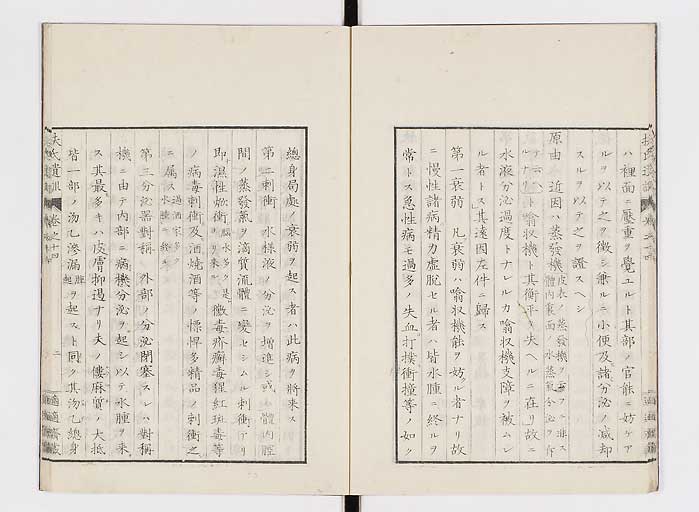 ハ裡面ニ壓重ヲ覺エルト其部ノ官能ニ妨ケア
ルヲ以テ之ヲ徴シ兼ルニ小便及諸分泌ノ減却
スルヲ以テ之ヲ證スヘシ
原由 近因ハ蒸發機
ト噏收機ト其衡平ヲ失ヘルニ在リ故ニ
水液分泌過度トナレルカ噏收機支障ヲ被ムレ
ル者トス其遠因左件ニ歸ス
第一衰弱 凡衰弱ハ噏收機蝕ヲ妨ル者ナリ故
ニ慢性諸病精力虚脱セル者ハ皆水腫ニ終ルヲ
常トス急性病モ過多ノ失血打撲衝撞等ノ如ク
扶氏遺訓 卷之十四 二
適適齋藏
總身局處ノ衰弱ヲ起ス者ハ此病ヲ將來ス
第二刺衝 水樣液ノ分泌ヲ増進シ或ハ體内腔
間ノ蒸發氣ヲ滴質流體ニ變セシムル刺衝ナリ
即濕性焮衝 黴毒疥癬毒猩紅斑毒等
ノ病毒刺衝及酒燒酒等ノ慓悍多精品ノ刺衝之
ニ屬ス
第三分泌器對稱 外部ノ分泌閉塞スレハ對稱
機ニ由テ内部ニ病機分泌ヲ起シ以テ水腫ヲ來
ス其最多キハ皮膚抑遏ナリ夫ノ僂麻質ノ大抵
皆一部ノ沕乙滲漏 ヲ起スト同ク其沕乙總身